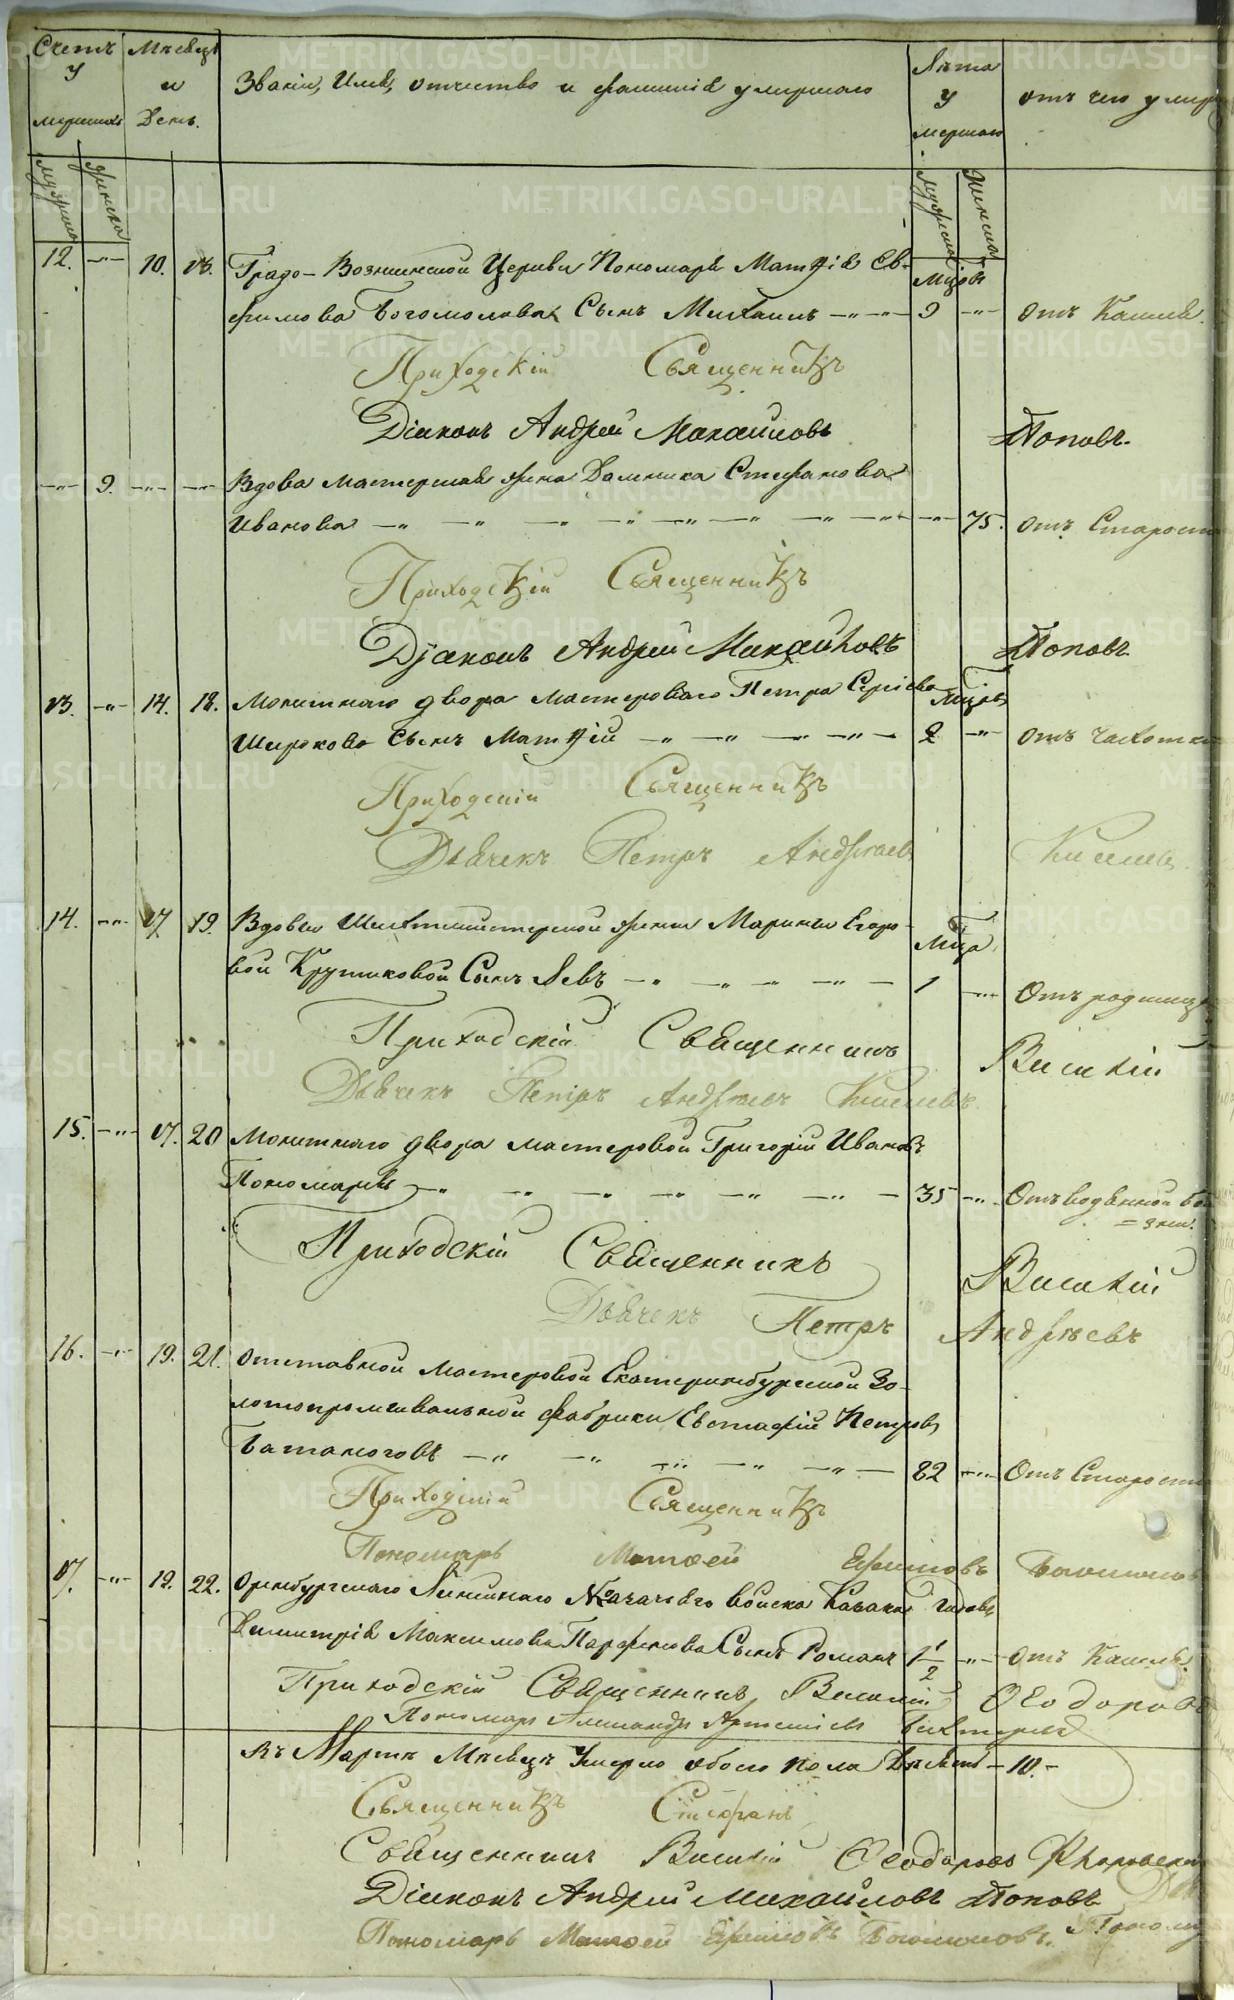 Счетъ Мѣсяцъ Лѣта
у и Званіе, Имя, отчество и фамилія умершаго у отъ чего умер
мершихъ День. мершаго
мужеска женска мужеска женска
12. —„— 10. 13. Градо-Вознесенской Церкви Пономаря Матѳія Ев- Мцовъ
фимова Богомолова Сынъ Михаилъ —„— 9 —„— отъ Кашля.
Приходскій Священникъ
Діаконъ Андрей Михайловъ Поповъ.
—„— 9. —„— —„— Вдова мастерская жена Домника Стефанова
Иванова —„— —„— 75. отъ Старост
Приходскій Священникъ
Діаконъ Андрей Михайловъ Поповъ.
13. —„— 14. 18. Монетнаго двора мастероваго Петра Сергіева Мцовъ
Широкова Сынъ Матѳій —„— 2 —„— отъ чахотки
Приходскій Священникъ
Дьячекъ Петръ Андреевъ Киселев
14. —„— 17. 19. Вдовы Шихтмейстерской жены Марины Егоро- Мца
вой Крутиковой Сынъ Левъ —„— 1 —„— Отъ родимца
Приходскій Священникъ Василій
Дьячекъ Петръ Андреевъ Киселевъ.
15. —„— 17. 20 Монетнаго двора мастеровой Григорій Ивановъ
Пономаревъ —„— 35 —„— Отъ водяной бо
=зни.
Приходскій Священникъ Василій
Дьячекъ Петръ Андреевъ
16. —„— 19. 21. Отставной Мастеровой Екатеринбургской Зо-
лотопромывальной фабрики Евстафій Петровъ
—„— 82 —„— Отъ Старости
Приходскій Священникъ
Пономарь Матѳей Ефимовъ
17. —„— 19. 22. Оренбургскаго Линейнаго Козачьяго войска Казака Годовъ
Димитрія Максимова Парфенова Сынъ Романъ 1 1/2 —„— отъ Кашля.
Приходскій Священникъ Василій Ѳеодоровъ
Пономарь Александръ
Въ Мартѣ Мѣсяцѣ Умерло обоего пола Десять —10.—
Священникъ Стефанъ
Священникъ Василій Ѳеодоровъ
Діаконъ Андрей Михайловъ Поповъ
Пономарь Матѳей Ефимовъ Богомоловъ.
METRIKI.GASO-URAL.RU